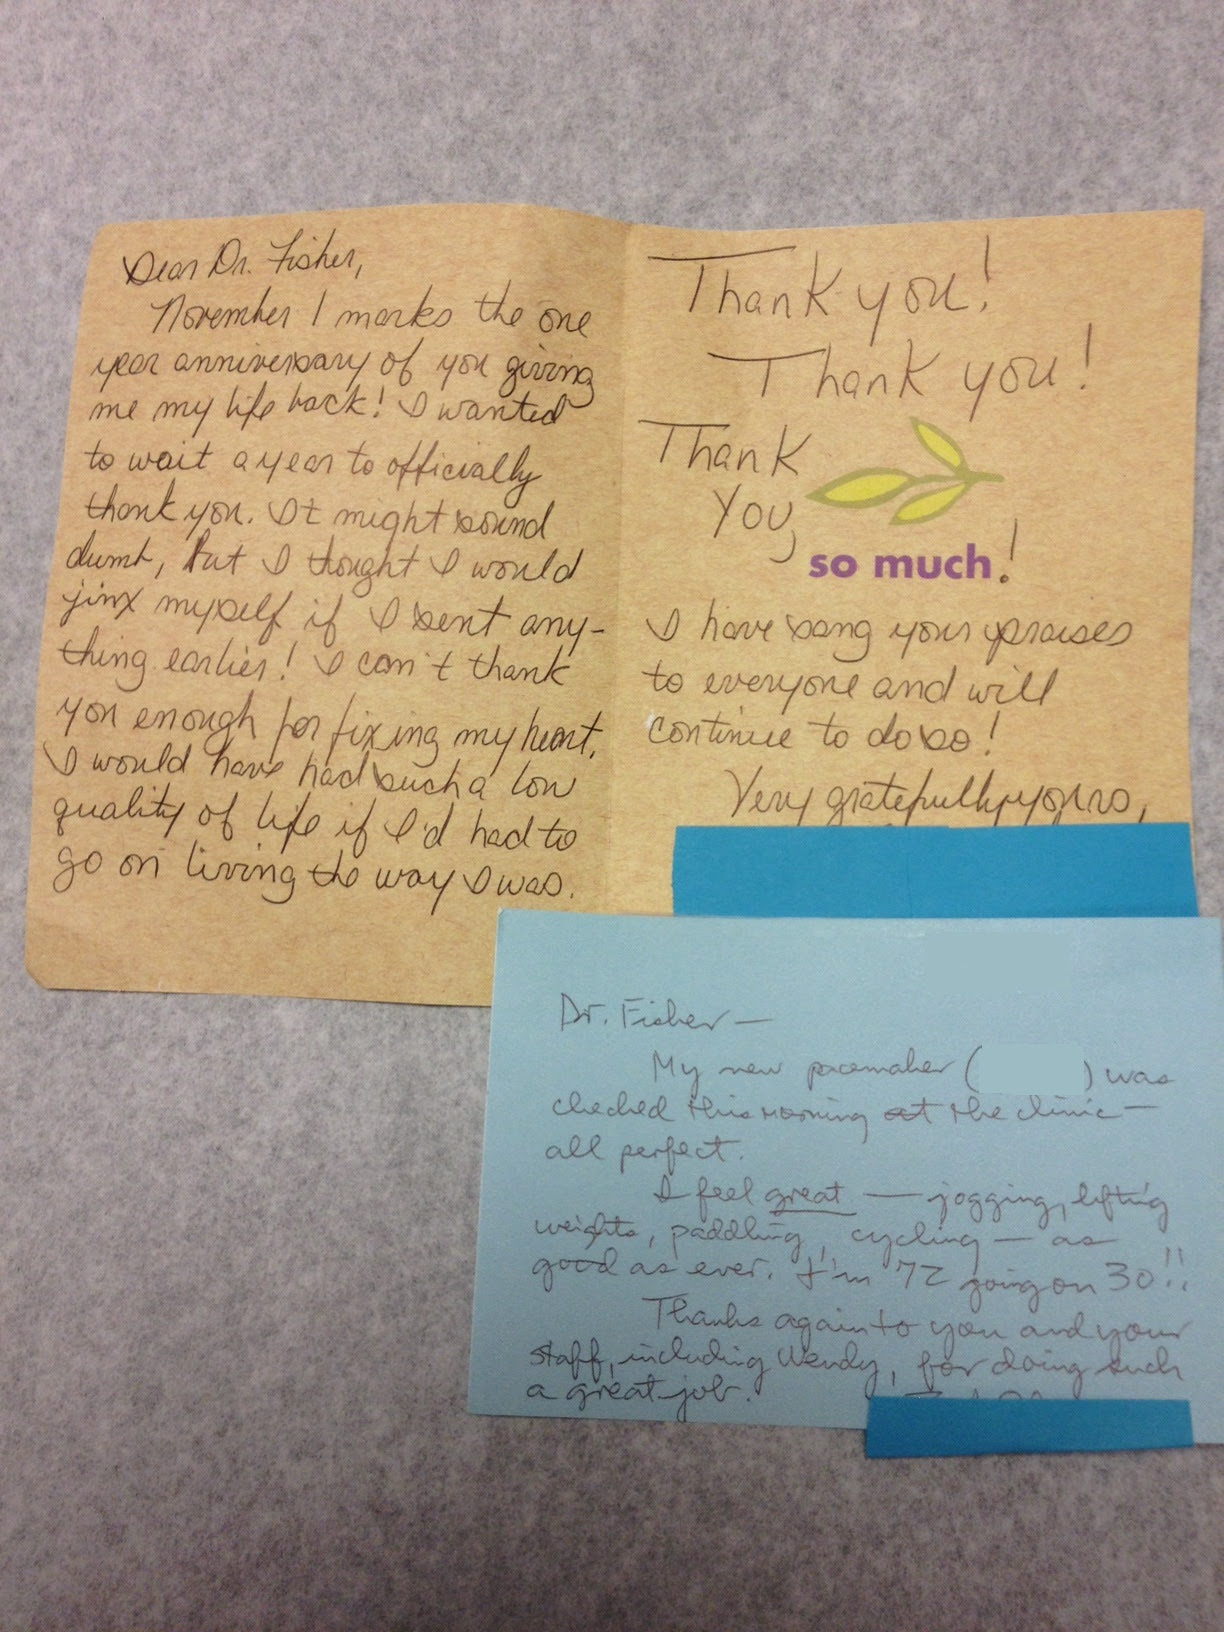 Dear Dr. Fisher,
November 1 marks the one
year anniversary of you giving
me my life back! I wanted
to wait a year to officially
thank you. It might sound
dumb, but I thought I would
jinx myself if I sent any-
thing earlier! I can't thank
you enough for fixing my heart.
I would have had such a low
quality of life if I'd had to
go on living the way I was.
Thank you!
Thank you!
Thank
You
so much!
I have sang your praises
to everyone and will
continue to do so!
Very gratefully yours,
Dr. Fisher —
My new pacemaker ( ) was
checked this morning at the clinic —
all perfect.
I feel great — jogging, lifting
weights, paddling, cycling — as
good as ever. I'm 72 going on 30!!
Thanks again to you and your
staff, including Wendy, for doing such
a great job.